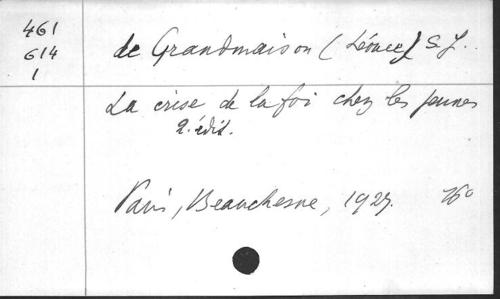 461
614
1
de Grandmaison (Léonce) S.J.
La crise de la foi chez les jeunes
2. édit.
Paris, Beauchesne, 1927. 16°